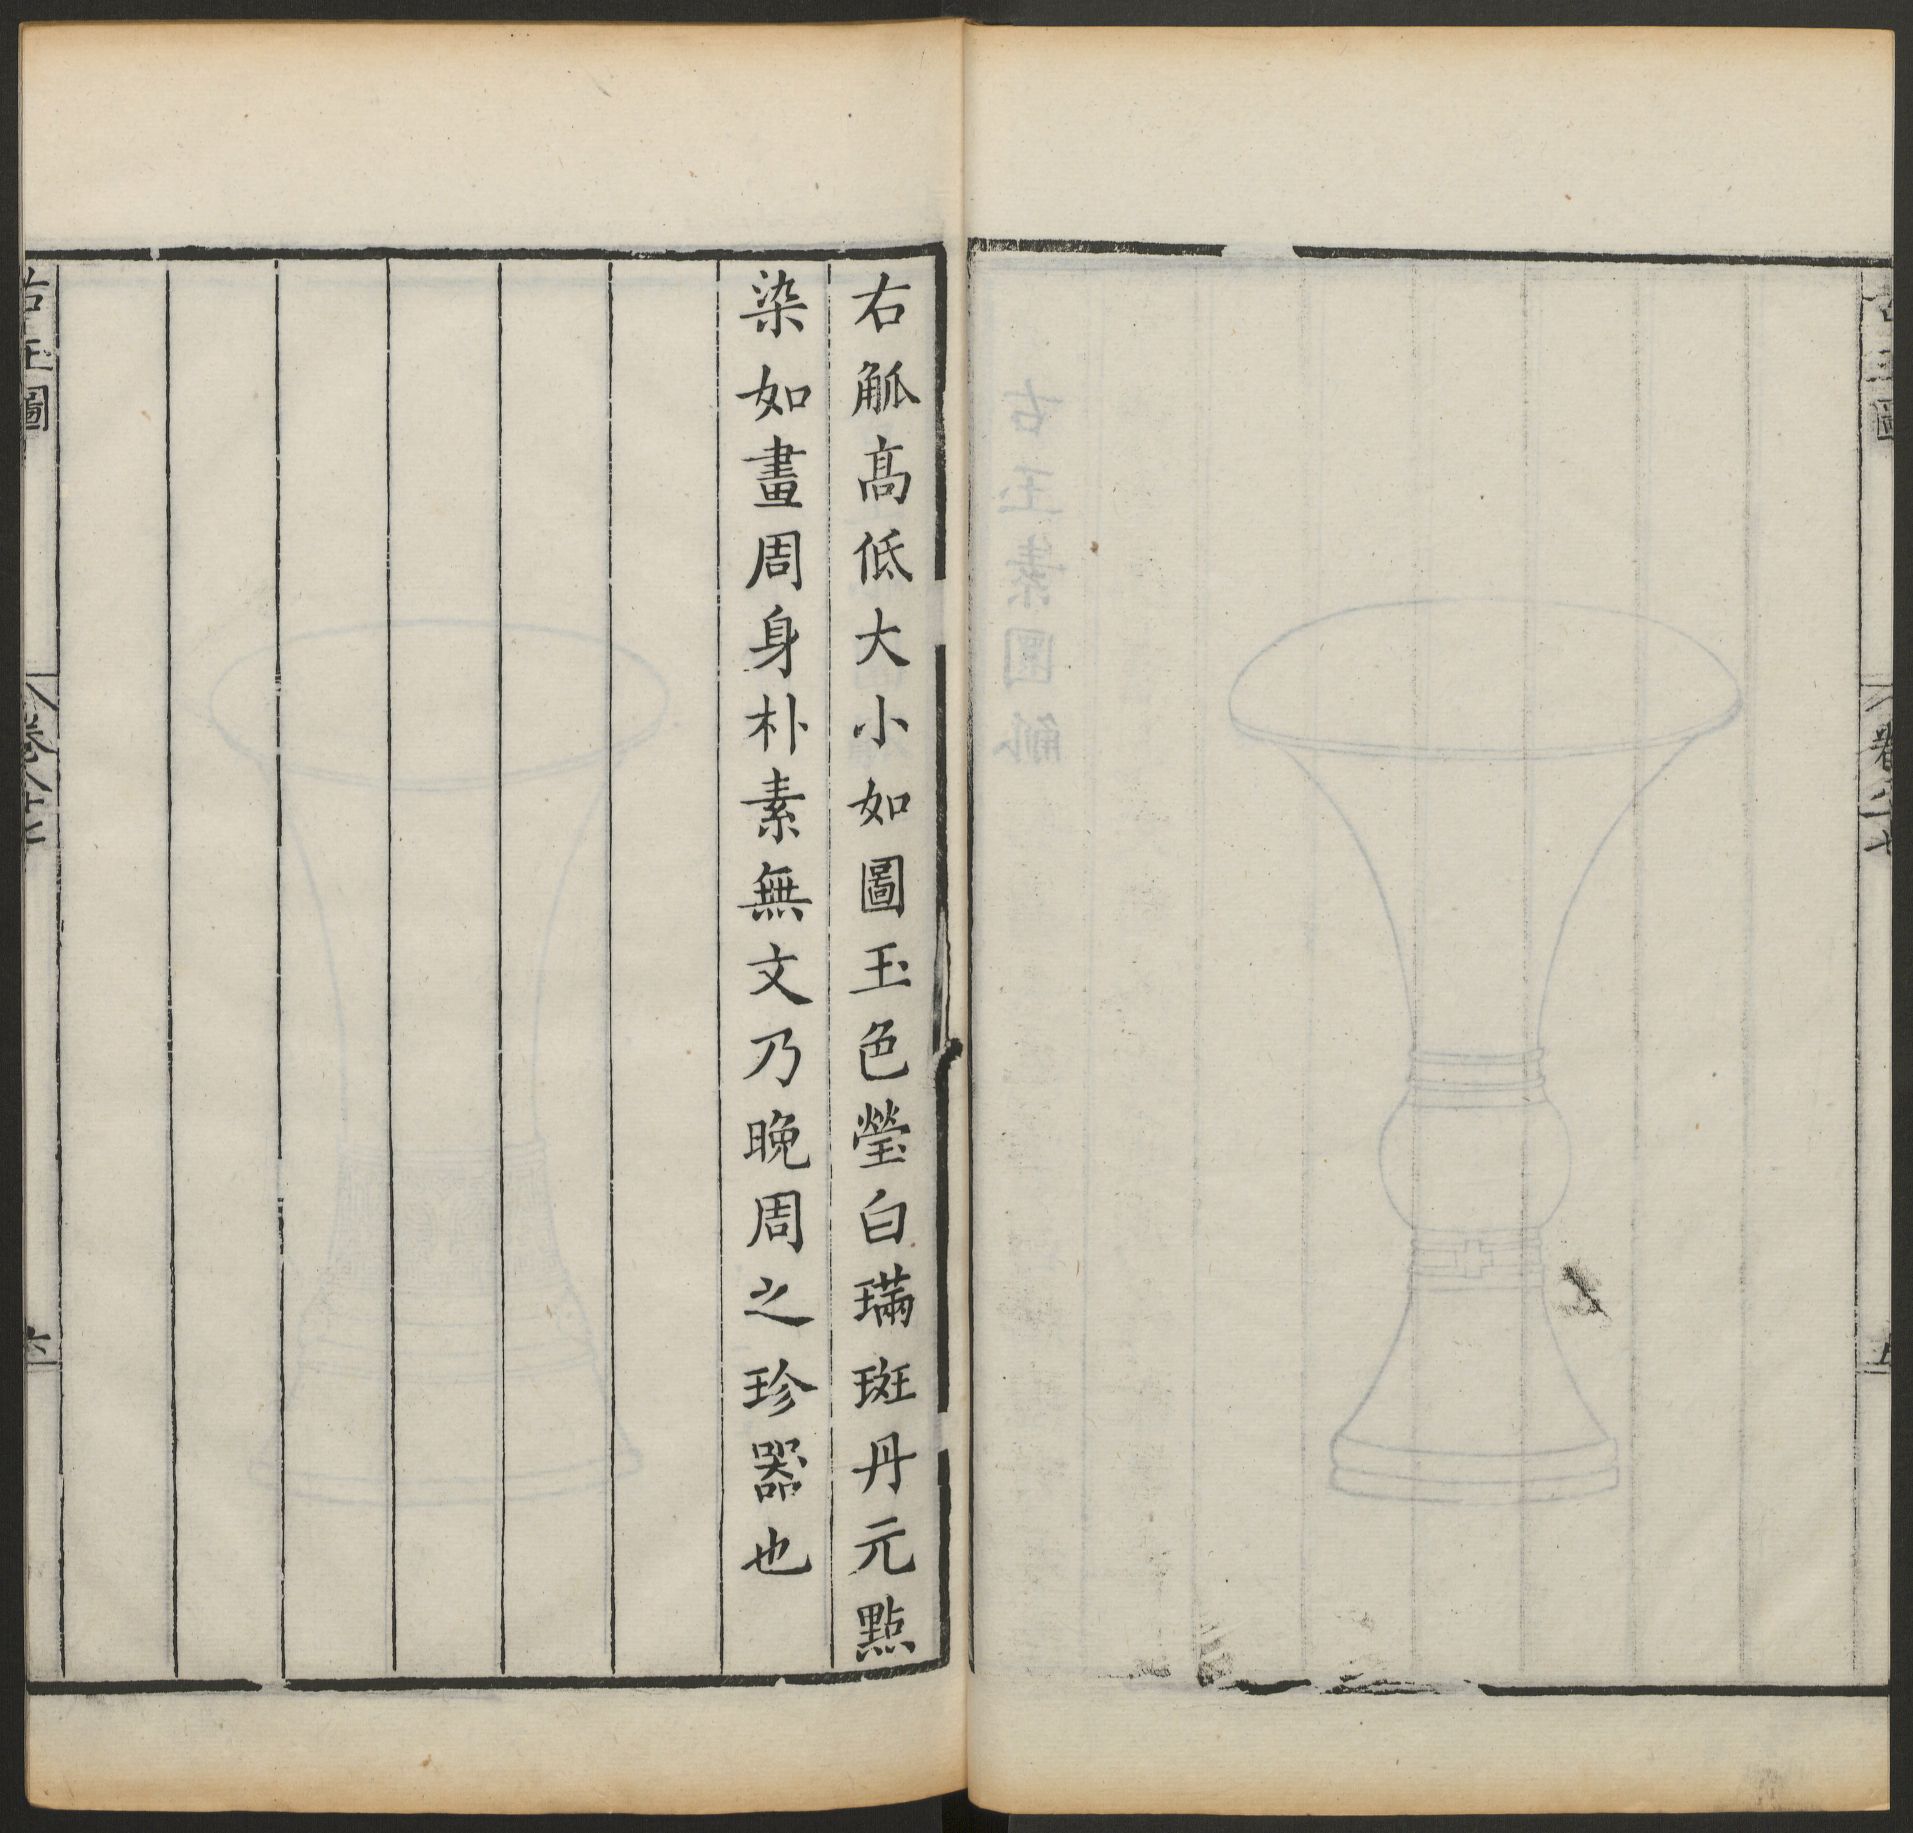 古玉圖
卷八十七
五
右觚高低大小如圖玉色瑩白璊斑丹元點
染如畫周身朴素無文乃晚周之珍器也
古玉圖
卷八十七
六